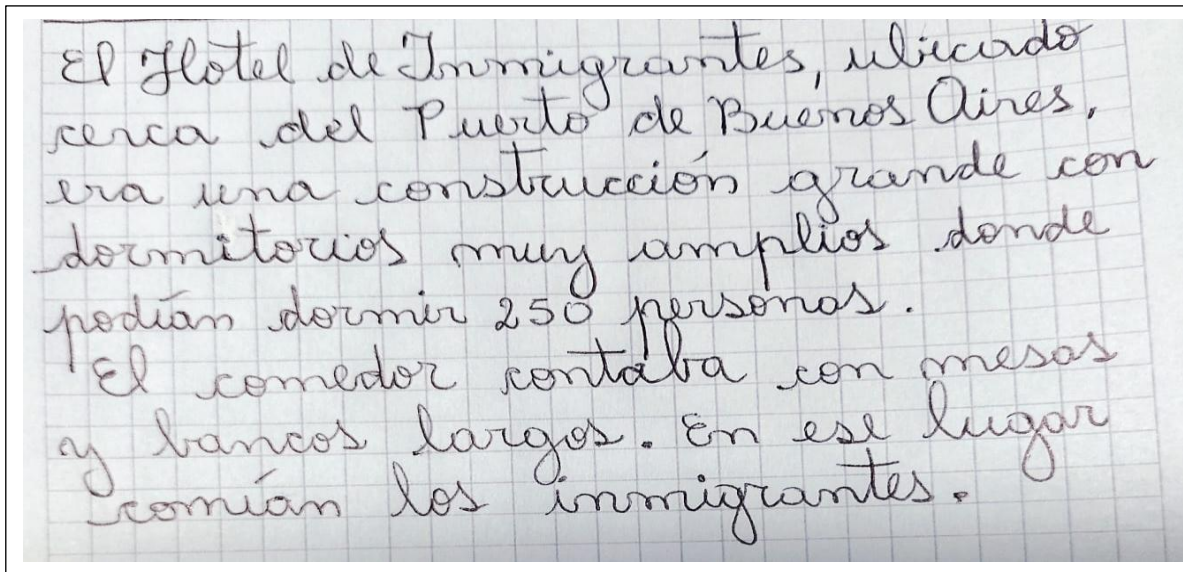 El Hotel de Inmigrantes, ubicado
cerca del Puerto de Buenos Aires,
era una construcción grande con
dormitorios muy amplios donde
podían dormir 250 personas.
El comedor contaba con mesas
y bancos largos. En ese lugar
comían los inmigrantes.